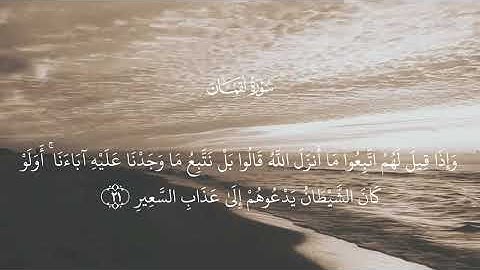 سُورَةُ لُقْمَان
وَإِذَا قِيلَ لَهُمُ اتَّبِعُوا مَا أَنزَلَ اللَّهُ قَالُوا بَلْ نَتَّبِعُ مَا وَجَدْنَا عَلَيْهِ آبَاءَنَا ۚ أَوَلَوْ
كَانَ الشَّيْطَانُ يَدْعُوهُمْ إِلَىٰ عَذَابِ السَّعِيرِ ﴿٢١﴾